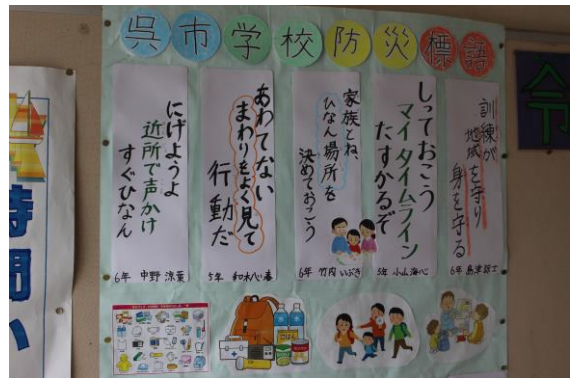 呉市学校防災標語
訓練が
地域を守り
身を守る
6年
しっておこう
マイタイムライン
たすかるぞ
5年 小山海心
家族とね、
ひなん場所を
決めておこう
6年 竹内いぶき
あわてない
まわりをよく見て
行動だ
5年
にげようよ
近所で声かけ
すぐひなん
6年 中野涼葉
時間い
令